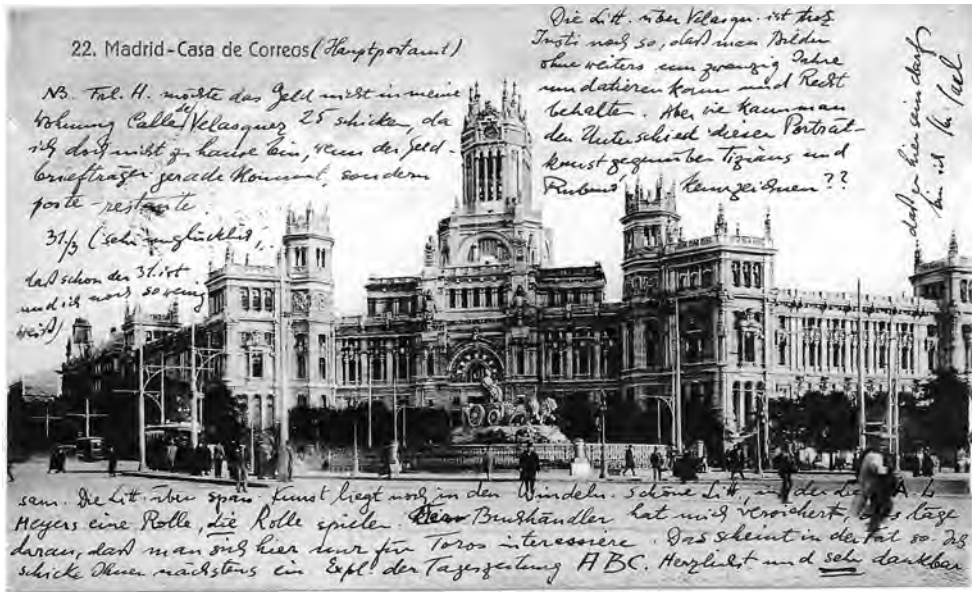 22. Madrid-Casa de Correos (Hauptpostamt)
NB. Frl. H. möchte das Geld nicht in meine
Wohnung Calle de Velasquez 25 schicken, da
ich dort nicht zu hause bin, wenn der Geld-
briefträger gerade kommt, sondern
poste-restante
31/3 (sehr unglücklich,
daß schon der 31. ist
und ich noch so wenig
weiß)
Die Litt. über Velasqu. ist trotz
Justi noch so, daß man Bilder
ohne weiters um zwanzig Jahre
umdatieren kann und Recht
behalten. Aber wie kann man
den Unterschied dieser Porträt-
kunst gegenüber Tizians und
Rubens' kennzeichnen??
daß ich hier sein darf
bin ich Ihr
sam. Die Litt. über span. Kunst liegt noch in den Windeln. Schöne Litt, in der die A. L.
Meyers eine Rolle, die Rolle spielen. Buchhändler hat mich versichert, es läge
daran, daß man sich hier nur für Toros interessiere. Das scheint in der Tat so. Ich
schicke Ihnen nächstens ein Expl. der Tageszeitung ABC. Herzlichst und sehr dankbar